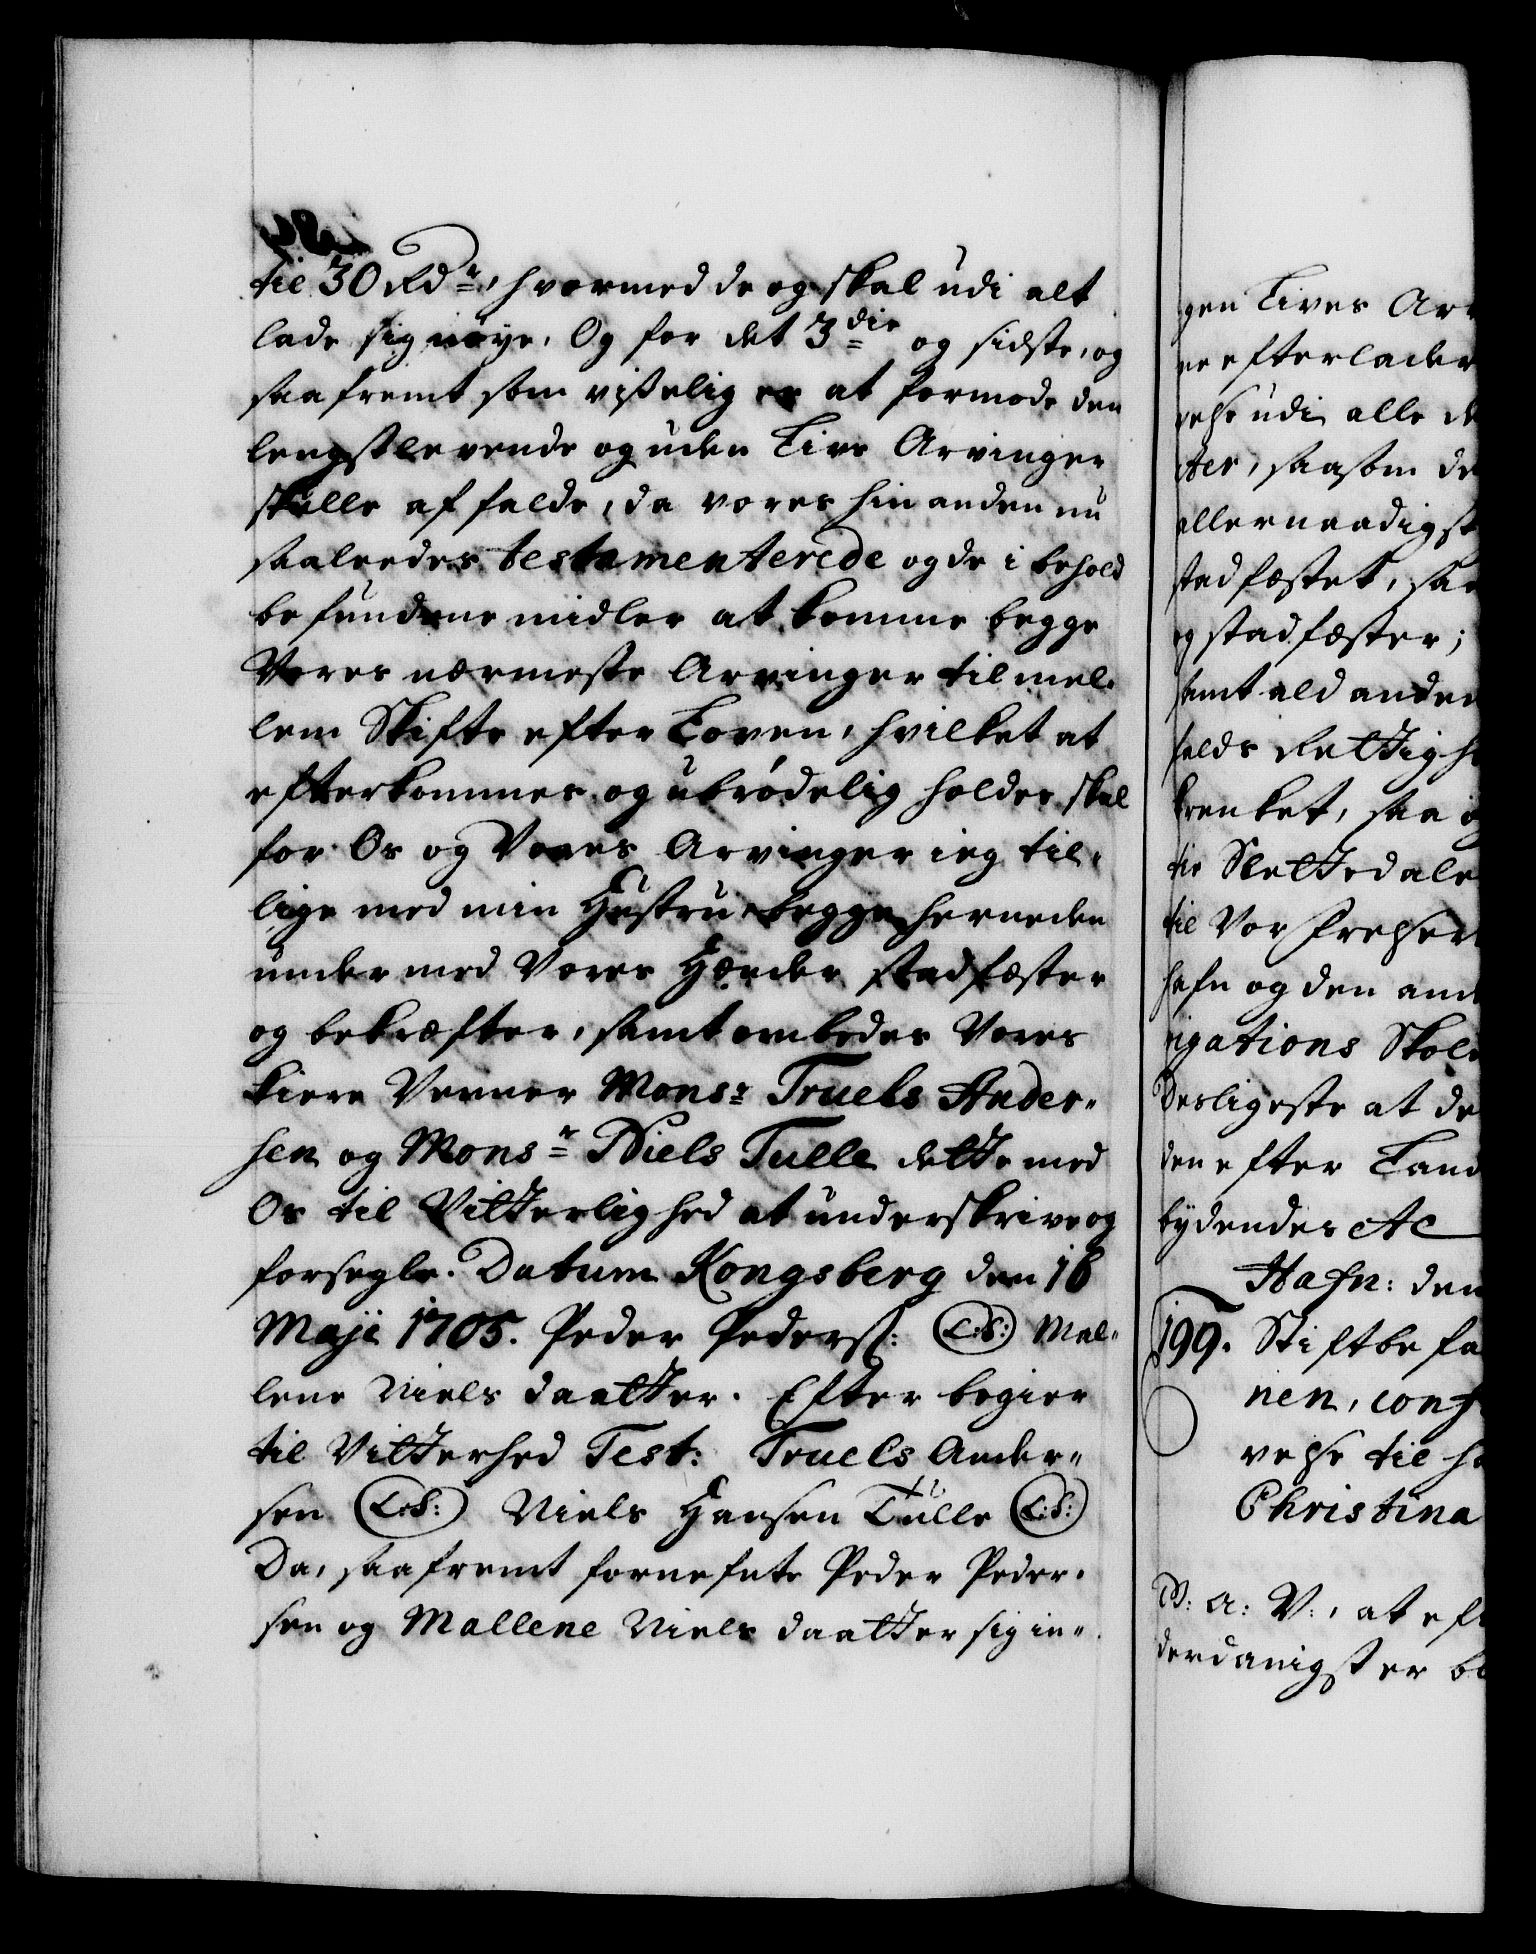 til 30 Rdr, hvormed de og skal udi alt
lade sig nøye. Og for det 3die og sidste, og
saa fremt som visselig er at formode den
lengstlevende og uden Livs Arvinger
skulle af falde, da vores hin anden nu
saaleedes testamenterede og de i behold
befundene midler at komme begge
Vores nærmeste Arvinger til mel-
lem Skifte efter Loven, hvilket at
efterkommes og ubrødelig holdes skal
for Os og Vores Arvinger ieg til-
lige med min Hustru begge herneden
under med Vores Hænder stadfæster
og bekræfter, samt ombedes Vores
kiere Venner Monsr Truels Ander-
sen og Monsr Niels Tulle dette med
Os til Vitterlighed at underskrive og
forsegle. Datum Kongsberg den 16
Maji 1705. Peder Pederss: (L:S:) Mal-
lene Niels daatter. Efter begier
til Vitterhed Test: Truels Ander-
sen (L:S:) Niels Hansen Tulle (L:S:)
Da, saafremt fornefnte Peder Peder-
sen og Mallene Niels daatter sig in-
gen Lives Ar
efterlader
velse udi alle de
ter, saasom de
allernaadigst
stadfæstet, saa
og stadfæster;
samt ald anden
falds Rettigh
krenket, saa
til Vor Frelser
hafn og den and
igations Skole
Desligeste at de
den efter Land
bydendes etc
Hafn: den
199. Stiftbefa
nen, conf
velse til h
Christina
V. A: V:, at eft
derdanigst er be